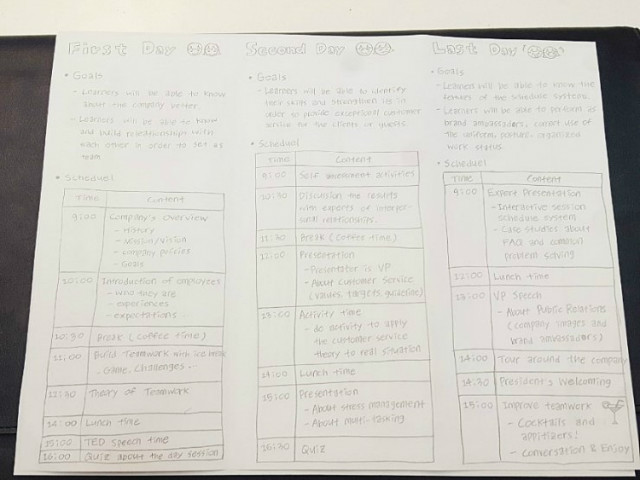 First Day
• Goals
- Learners will be able to know
about the company better.
- Learners will be able to know
and build realationships with
each other in order to act as
team.
• Scheduel
Time Content
9:00 Company's Overview
- History
- Mission/Vision
- company policies
- Goals
10:00 Introduction of employees
- who they are
- experiences
- expectations
10:30 Break (coffee time)
11:00 Build Teamwork with ice
Game, Challenges -
12:30 Theory of Teamwork
14:00 Lunch time
15:00 TED Speech time
16:00 Quiz about the day session
Second Day
• Goals
- Learners will be able to identify
their skills and strengthen in
order to provide exceptional customer
service for the clients or guests.
• Scheduel
Time Content
9:00 Self assessment activities
10:30 Discussion the results
with experts of interper-
sonal relationships.
11:30 Break (coffee time)
12:00 Presentation
- Presentator is VP
- About Customer Service
(values, targets, guideline)
13:00 Activity time
- do activity to apply
the customer service
theory to real situation
14:00 Lunch time
15:00 Presentation
- About stress management
- About multi-tasking
16:30 Quiz
Last Day
• Goals
- Learners will be able to know the
features of the schedule system.
- Learners will be able to perform as
brand ambassadors, correct use of
the uniform, posture, organized
work status.
• Scheduel
Time Content
9:00 Expert Presentation
- Interactive session
schedule system
- Case studies about
FAQ and common
problem solving
12:00 Lunch time
13:00 VP Speech
- About Public Relations
(company images and
brand ambassadors)
14:00 Tour around the company
14:30 President's Welcoming
15:00 Improve teamwork
- Cocktails and
appitizers!
- Conversation & Enjoy